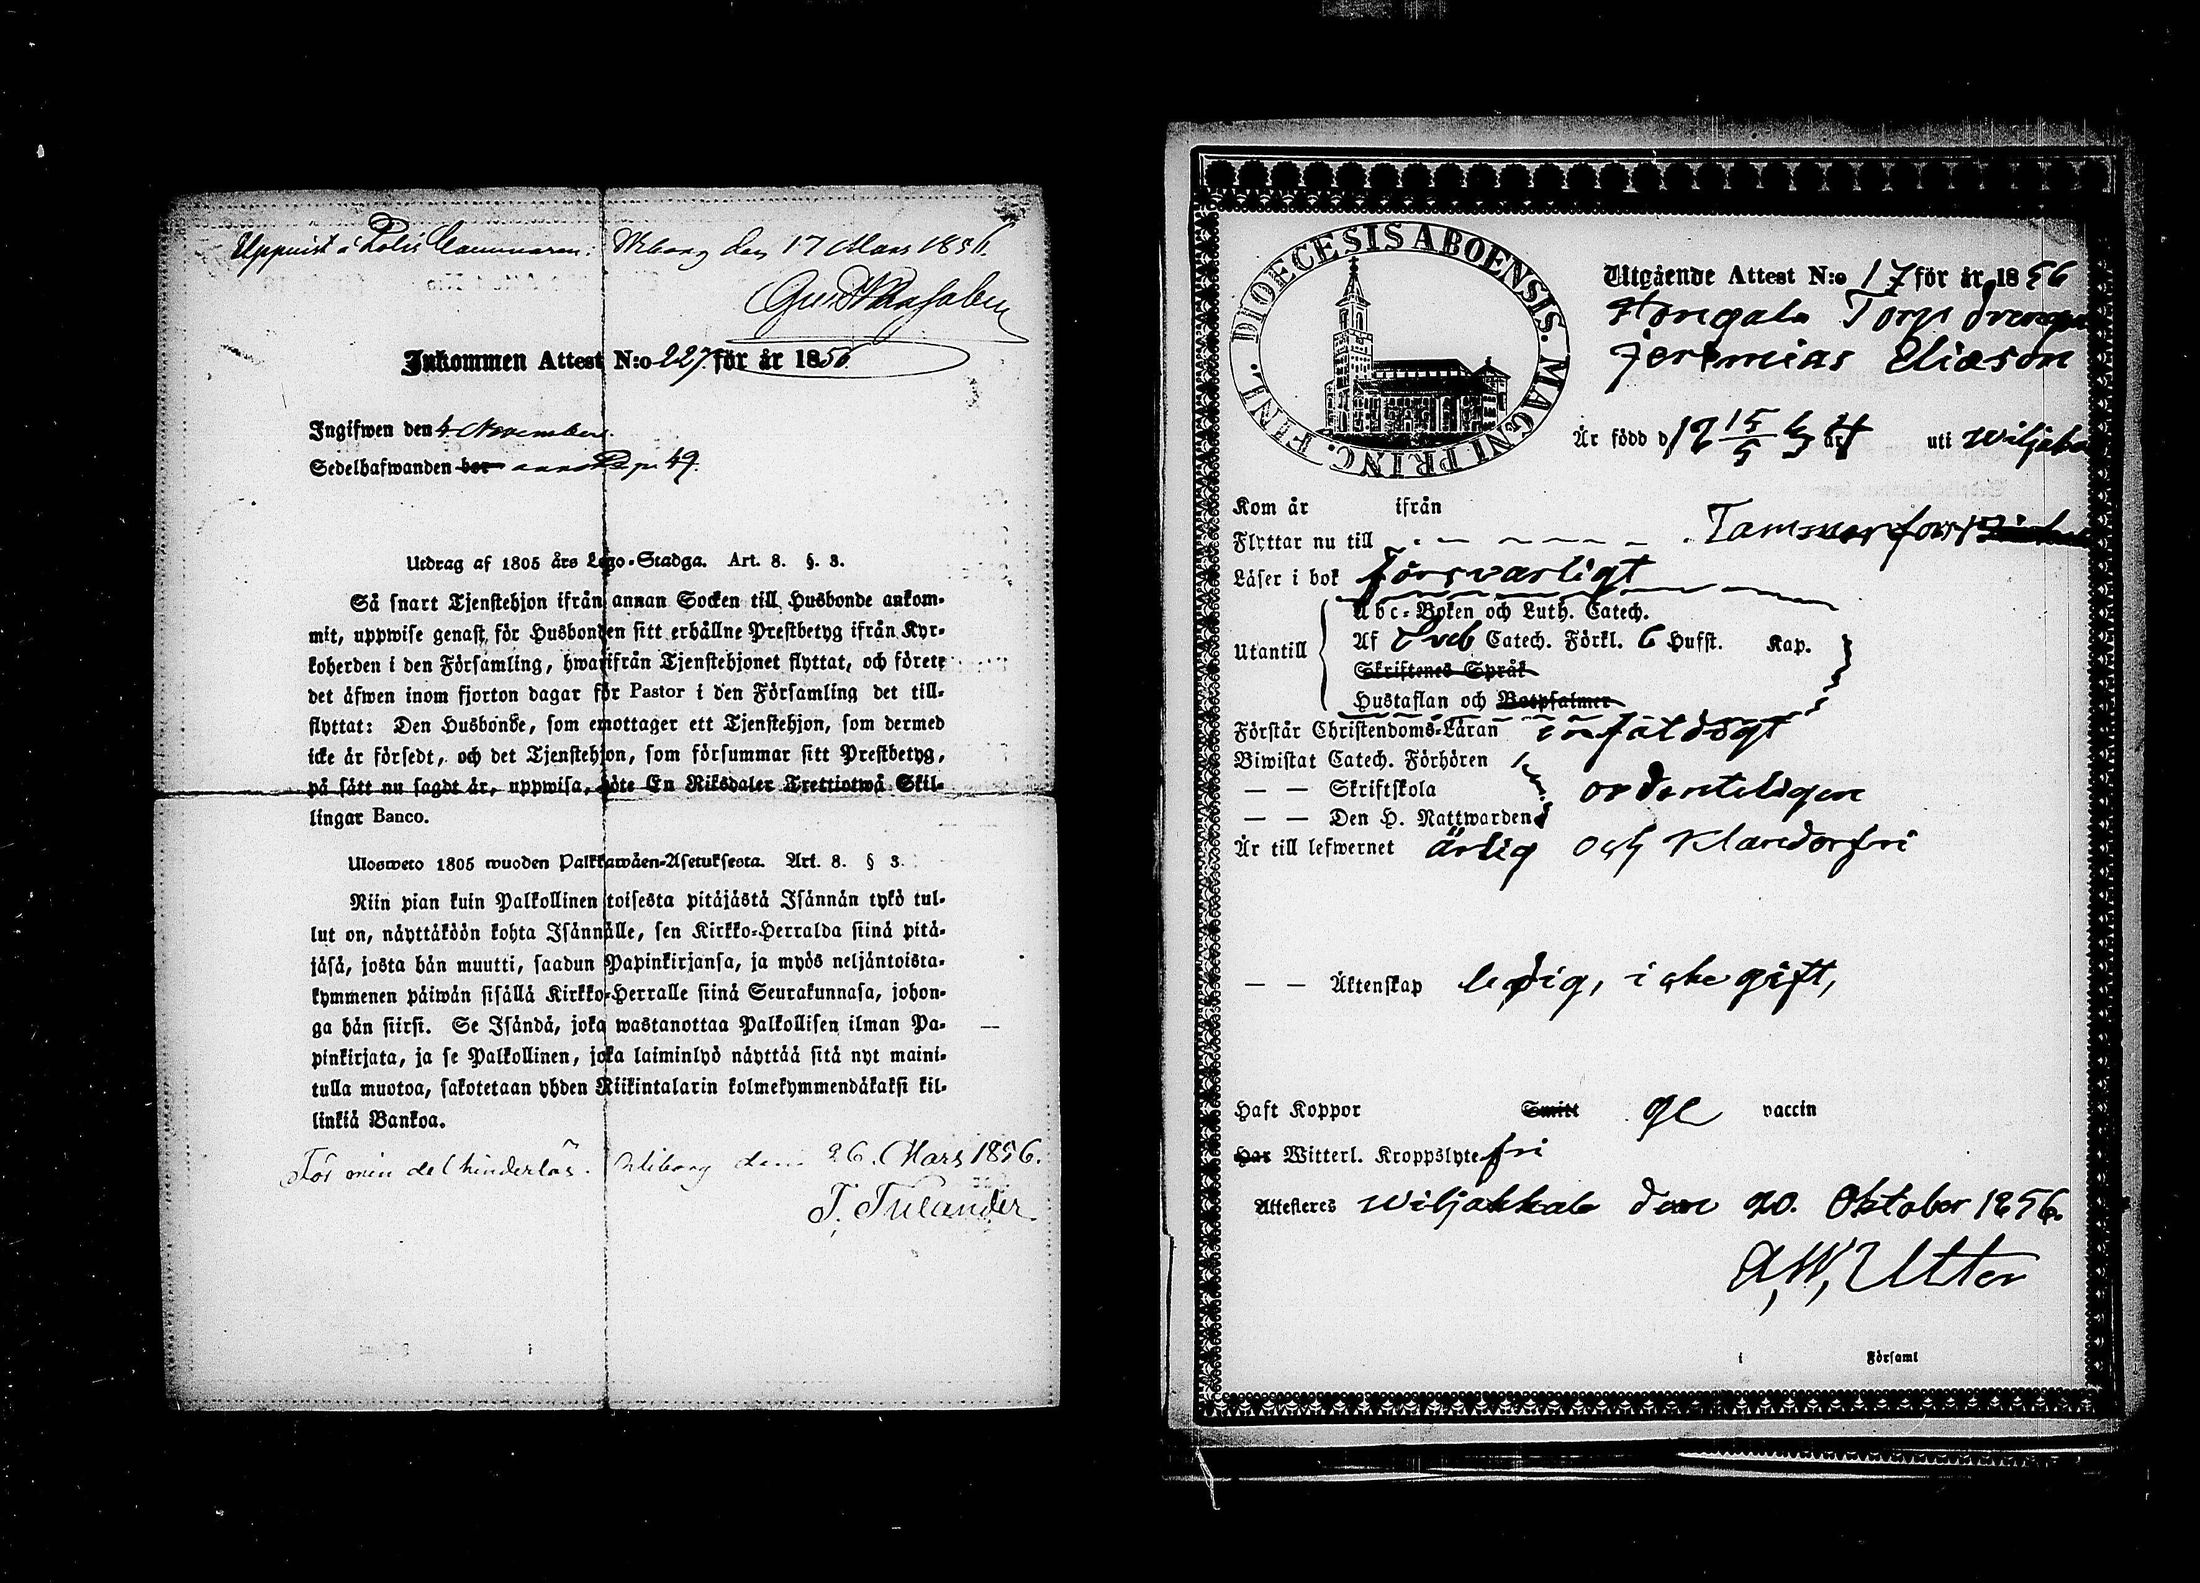 Uppvist i Polis Cammaren: Wiborg den 17 Mars 1856.
Inkommen Attest N:o 227 för år 1856
Ingifwen den 4 November.
Sedelhafwanden bor annot. pag. 49.
Utdrag af 1805 års Lego-Stadga. Art. 8. §. 3.
Så snart Tjenstehjon ifrån annan Socken till Husbonde ankom-
mit, uppwise genast för Husbonden sitt erhållne Prestbetyg ifrån Kyr-
koherden i den Församling, hwarifrån Tjenstehjonet flyttat, och förete
det äfwen inom fjorton dagar för Pastor i den Församling det till-
flyttat: Den Husbonde, som emottager ett Tjenstehjon, som dermed
icke är försedt, och det Tjenstehjon, som försummar sitt Prestbetyg,
på sätt nu sagdt är, uppwisa, böte En Riksdaler Trettiotwå Skil-
lingar Banco.
Ulosweto 1805 wuoden Palkkawäen-Asetuksesta. Art. 8. § 3.
Niin pian kuin Palkollinen toisesta pitäjästä Isännän tykö tul-
lut on, näyttäköön kohta Isännälle, sen Kirkko-Herralda siinä pitä-
jäsä, josta hän muutti, saadun Papinkirjansa, ja myös neljäntoista-
kymmenen päiwän sisällä Kirkko-Herralle siinä Seurakunnasa, johon-
ga hän siirsi. Se Isändä, joka wastanottaa Palkollisen ilman Pa-
pinkirjata, ja se Palkollinen, joka laiminlyö näyttää sitä nyt maini-
tulla muotoa, sakotetaan yhden Riikintalarin kolmekymmendäkaksi kil-
linkiä Bankoa.
För min del hinderlös. Wiborg den 26. Mars 1856.
T. Tulander.
DIOECESIS ABOENSIS. MAGNI PRINC. FINL.
Utgående Attest N:o 17 för år 1856
Torp
Jeremias Eliæson
Är född d 18 15/5 år uti Wiljaka
Kom år ifrån
Flyttar nu till Tammerfors
Läser i bok försvarligt
Utantill
Abc-Boken och Luth. Catech.
Af Sveb Catech. Förkl. 6 Hufst. Kap.
Skriftenes Språk
Hustaflan och Botpsalmer
Förstår Christendoms-Läran enfäldigt
Biwistat Catech. Förhören
— — Skriftskola ordenteligen
— — Den H. Nattwarden
Är till lefwernet ärlig och klanderfri
— — Äktenskap ledig, icke gift,
Haft Koppor Smitt ge vaccin
Har Witterl. Kroppslyte fri
Attesteres Wiljakkala den 20. Oktober 1856.
A, W, Utter
i Församl